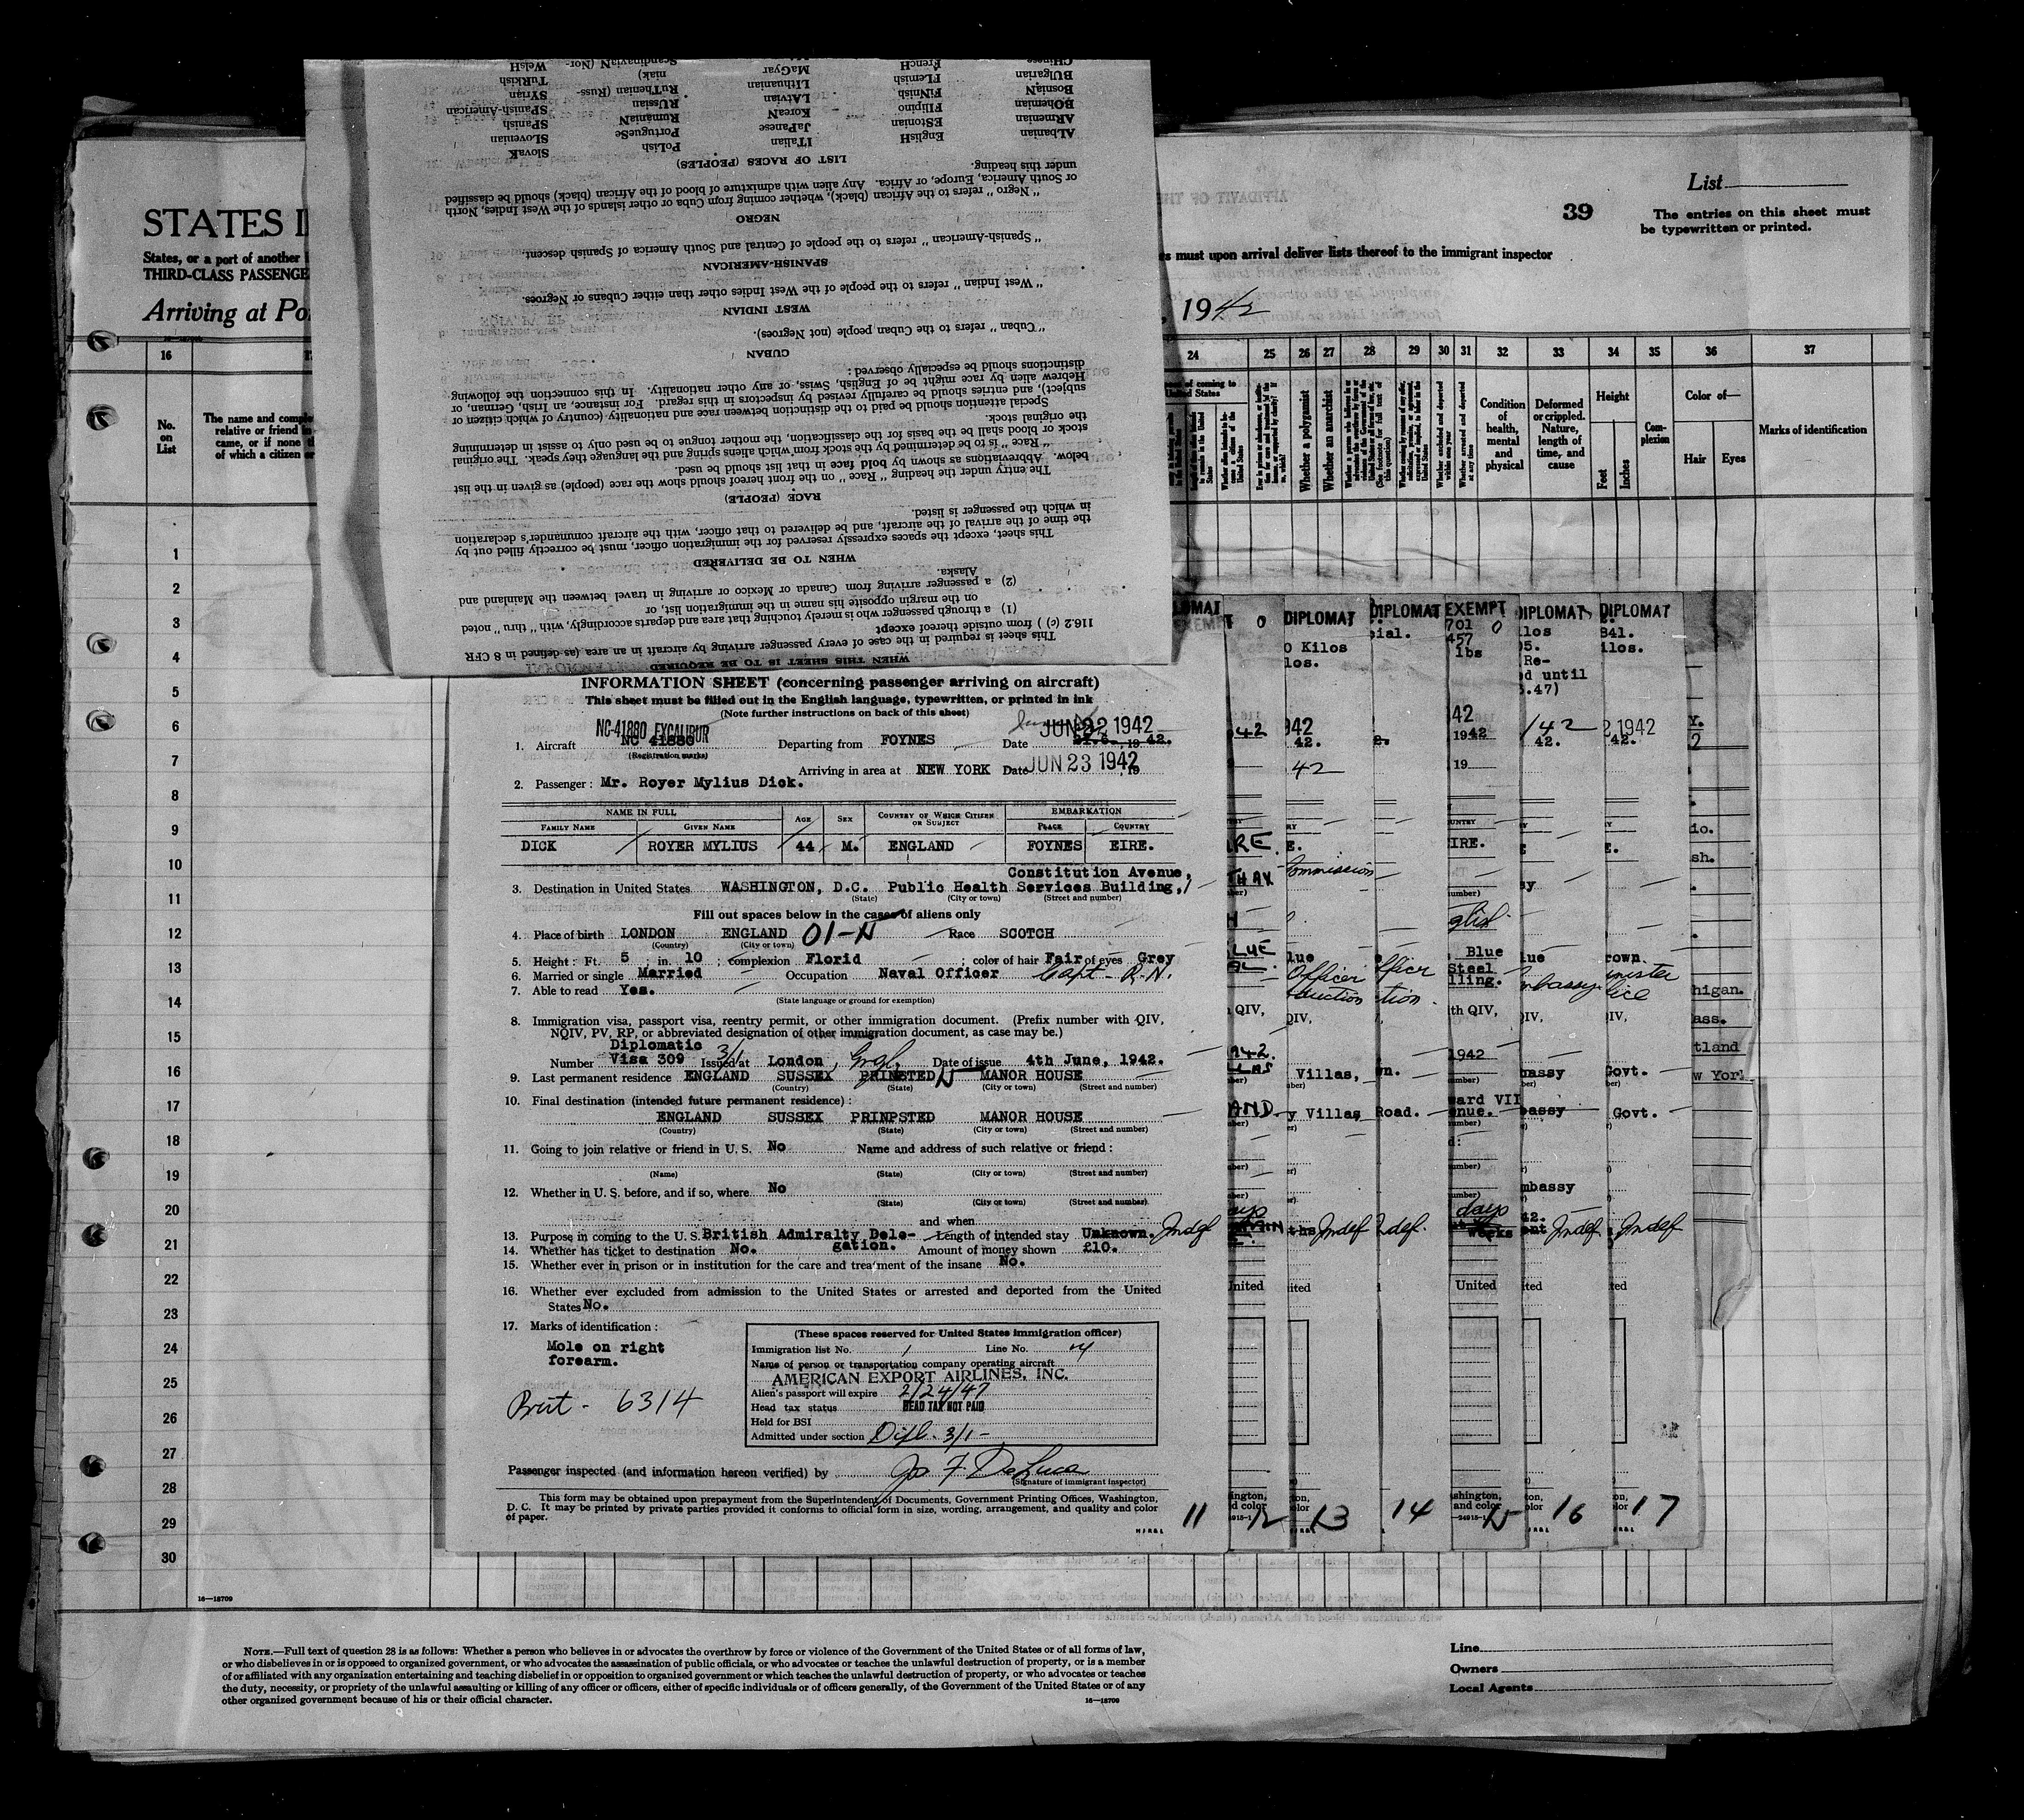 STATES I
States, or a port of another
THIRD-CLASS PASSENGE
Arriving at Po
39
List
The entries on this sheet must
be typewritten or printed.
s must upon arrival deliver lists thereof to the immigrant inspector
, 1942
16
No.
on
List
The name and comple
relative or friend in
came, or if none th
of which a citizen or
24
25
26
27
28
29
30
31
32
33
34
35
36
37
of coming to
United States
Whether a polygamist
Whether an anarchist
Condition
of
health,
mental
and
physical
Deformed
or crippled.
Nature,
length of
time, and
cause
Height
Feet
Inches
Com-
plexion
Color of—
Hair
Eyes
Marks of identification
1
2
3
4
5
6
7
8
9
10
11
12
13
14
15
16
17
18
19
20
21
22
23
24
25
26
27
28
29
30
16—18709
WHEN THIS SHEET IS TO BE REQUIRED
This sheet is required in the case of every passenger arriving by aircraft in an area (as defined in 8 CFR
116.2 (c) ) from outside thereof except
(1) a through passenger who is merely touching that area and departs accordingly, with "thru" noted
on the margin opposite his name in the immigration list, or
(2) a passenger arriving from Canada or Mexico or arriving in travel between the Mainland and
Alaska.
WHEN TO BE DELIVERED
This sheet, except the spaces expressly reserved for the immigration officer, must be correctly filled out by
the time of the arrival of the aircraft, and be delivered to that officer, with the aircraft commander's declaration
in which the passenger is listed.
RACE (PEOPLE)
The entry under the heading "Race" on the front hereof should show the race (people) as given in the list
below. Abbreviations as shown by bold face in that list should be used.
"Race" is to be determined by the stock from which aliens spring and the language they speak. The original
stock or blood shall be the basis for the classification, the mother tongue to be used only to assist in determining
the original stock.
Special attention should be paid to the distinction between race and nationality (country of which citizen or
subject), and entries should be carefully revised by inspectors in this regard. For instance, an Irish, German, or
Hebrew alien by race might be of English, Swiss, or any other nationality. In this connection the following
distinctions should be especially observed:
CUBAN
"Cuban" refers to the Cuban people (not Negroes).
WEST INDIAN
"West Indian" refers to the people of the West Indies other than either Cubans or Negroes.
SPANISH-AMERICAN
"Spanish-American" refers to the people of Central and South America of Spanish descent.
NEGRO
"Negro" refers to the African (black), whether coming from Cuba or other islands of the West Indies, North
or South America, Europe, or Africa. Any alien with admixture of blood of the African (black) should be classified
under this heading.
LIST OF RACES (PEOPLES)
ALbanian EnglisH ITalian PoLish SlovaK
ARmenian EStonian JaPanese PortuguеSe SLOvenian
BOhemian FIlipino KoreaN RumaniaN SPanish
BosniaN FiNnish LAtvian RUssian SPanish-American
BUlgarian FLemish LIthuanian RuThenian (Russ- SYrian
CHinese FrencH MaGyar niak) TuRkish
ScandinaviaN (Nor- WelsH
INFORMATION SHEET (concerning passenger arriving on aircraft)
This sheet must be filled out in the English language, typewritten, or printed in ink
(Note further instructions on back of this sheet)
NC-41880 EXCALIBUR
JUN 22 1942
1. Aircraft NC 41880 Departing from FOYNES Date 21.6., 1942.
(Registration marks)
Arriving in area at NEW YORK Date JUN 23 1942, 19
2. Passenger: Mr. Royer Mylius Dick.
NAME IN FULL AGE SEX COUNTRY OF WHICH CITIZEN OR SUBJECT EMBARKATION
FAMILY NAME GIVEN NAME PLACE COUNTRY
DICK ROYER MYLIUS 44 M. ENGLAND FOYNES EIRE.
Constitution Avenue,
3. Destination in United States WASHINGTON, D.C. Public Health Services Building,
(State) (City or town) (Street and number)
Fill out spaces below in the case of aliens only
4. Place of birth LONDON ENGLAND 01-N Race SCOTCH
(Country) (City or town)
5. Height: Ft. 5; in. 10; complexion Florid; color of hair Fair of eyes Grey
6. Married or single Married Occupation Naval Officer Capt - R.N.
7. Able to read Yes.
(State language or ground for exemption)
8. Immigration visa, passport visa, reentry permit, or other immigration document. (Prefix number with QIV,
NQIV, PV, RP, or abbreviated designation of other immigration document, as case may be.)
Diplomatic
Number Visa 309 3/1 Issued at London, Engl. Date of issue 4th June, 1942.
9. Last permanent residence ENGLAND SUSSEX PRINSTED N MANOR HOUSE
(Country) (State) (City or town) (Street and number)
10. Final destination (intended future permanent residence):
ENGLAND SUSSEX PRINPSTED MANOR HOUSE
(Country) (State) (City or town) (Street and number)
11. Going to join relative or friend in U. S. No Name and address of such relative or friend:
(Name) (State) (City or town) (Street and number)
12. Whether in U. S. before, and if so, where No
(State) (City or town) (Street and number)
and when
13. Purpose in coming to the U. S. British Admiralty Dele- Length of intended stay Unknown. Indef
gation.
14. Whether has ticket to destination No. Amount of money shown £10.
15. Whether ever in prison or in institution for the care and treatment of the insane No.
16. Whether ever excluded from admission to the United States or arrested and deported from the United
States No.
17. Marks of identification:
Mole on right
forearm.
Brit - 6314
(These spaces reserved for United States immigration officer)
Immigration list No. 1 Line No. 4
Name of person or transportation company operating aircraft
AMERICAN EXPORT AIRLINES, INC.
Alien's passport will expire 2/24/47
Head tax status HEAD TAX NOT PAID
Held for BSI
Admitted under section Dipl. 3/1-
Passenger inspected (and information hereon verified) by Jos F DeLuca
(Signature of immigrant inspector)
This form may be obtained upon prepayment from the Superintendent of Documents, Government Printing Offices, Washington,
D. C. It may be printed by private parties provided it conforms to official form in size, wording, arrangement, and quality and color
of paper.
11
12
13
14
15
16
17
DIPLOMAT
EXEMPT
DIPLOMAT
DIPLOMAT
EXEMPT
DIPLOMAT
DIPLOMAT
0 Kilos
los.
cial.
701
457
lbs
ilos
95.
Re-
ed until
.47)
841.
ilos.
Commission
Blue
Steel
Officer
Villas,
y Villas
Road.
ward VII
enue.
bassy
Govt.
bassy
Govt.
mbassy
days
weeks
Indef
Indef
Indef
United
higan.
ass.
tland
w York
NOTE.—Full text of question 28 is as follows: Whether a person who believes in or advocates the overthrow by force or violence of the Government of the United States or of all forms of law,
or who disbelieves in or is opposed to organized government, or who advocates the assassination of public officials, or who advocates or teaches the unlawful destruction of property, or is a member
of or affiliated with any organization entertaining and teaching disbelief in or opposition to organized government or which teaches the unlawful destruction of property, or who advocates or teaches
the duty, necessity, or propriety of the unlawful assaulting or killing of any officer or officers, either of specific individuals or of officers generally, of the Government of the United States or of any
other organized government because of his or their official character.
16—18709
Line
Owners
Local Agents